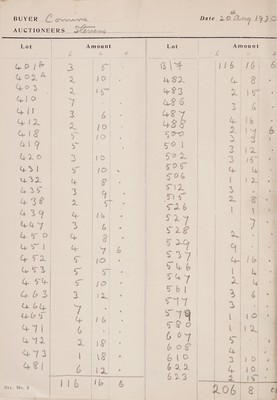 BUYER Comins Date 20th Aug 193
AUCTIONEERS Stevens
Lot Amount Lot Amount
£ s d £ s d
401A 3 5 .
402A 2 10 .
403 2 15 .
410 7 . .
411 3 6 .
412 2 10 .
418 5 10 .
419 5 . .
420 3 10 .
431 5 10 .
432 4 8 .
435 3 9 .
438 2 5 .
439 4 16 .
447 3 6 .
450 4 8 .
451 4 7 6
452 5 10 .
453 5 5 .
454 5 10 .
463 3 12 .
464 7 . .
465 4 16 .
471 6 . .
472 2 18 .
473 1 18 .
481 6 12 .
116 16 6
B/F 116 16 6
482 4 8 .
483 2 15 .
486 3 6 .
487 4 16 .
488 2 17 6
500 3 3 .
501 3 12 .
502 3 15 .
505 4 4 .
506 1 12 .
512 3 . .
515 2 8 .
526 1 1 .
527 7 .
528 2 . .
529 9 . .
537 4 16 .
546 1 4 .
547 2 4 .
561 3 6 .
577 3 . .
579 1 10 .
580 1 12 .
607 5 . .
608 4 . .
610 3 10 .
622 4 10 .
623 2 15 .
206 8